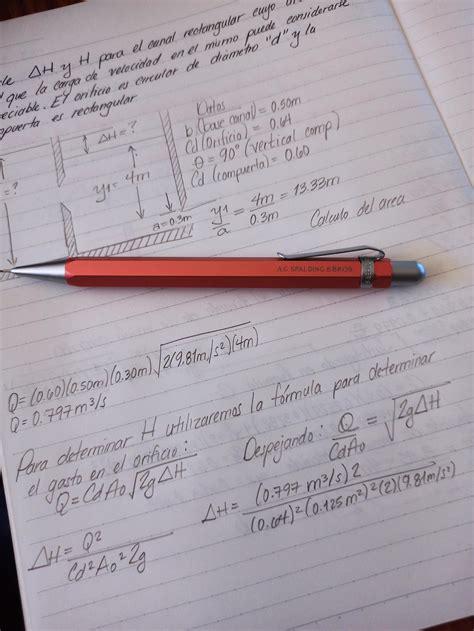 ΔH y H para el canal rectangular cuyo
que la carga de velocidad en el mismo puede considerarse
reciable. El orificio es circular de diámetro "d" y la
puerta es rectangular
Datos
b (base canal) = 0.50m
Cd (Orificio) = 0.64
θ = 90° (vertical comp)
Cd (compuerta) = 0.60
ΔH = ?
= ?
y1 = 4m
a = 0.3m
y1/a = 4m/0.3m = 13.33m
Calculo del area
A.G SPALDING & BROS
Q = (0.60)(0.50m)(0.30m)√2(9.81m/s²)(4m)
Q = 0.797 m³/s
Para determinar H utilizaremos la fórmula para determinar
el gasto en el orificio:
Q = CdAo√2gΔH
Despejando: Q/CdAo = √2gΔH
ΔH = Q²/Cd²Ao²2g
ΔH = (0.797 m³/s)2/(0.64)²(0.125m²)²(2)(9.81m/s²)